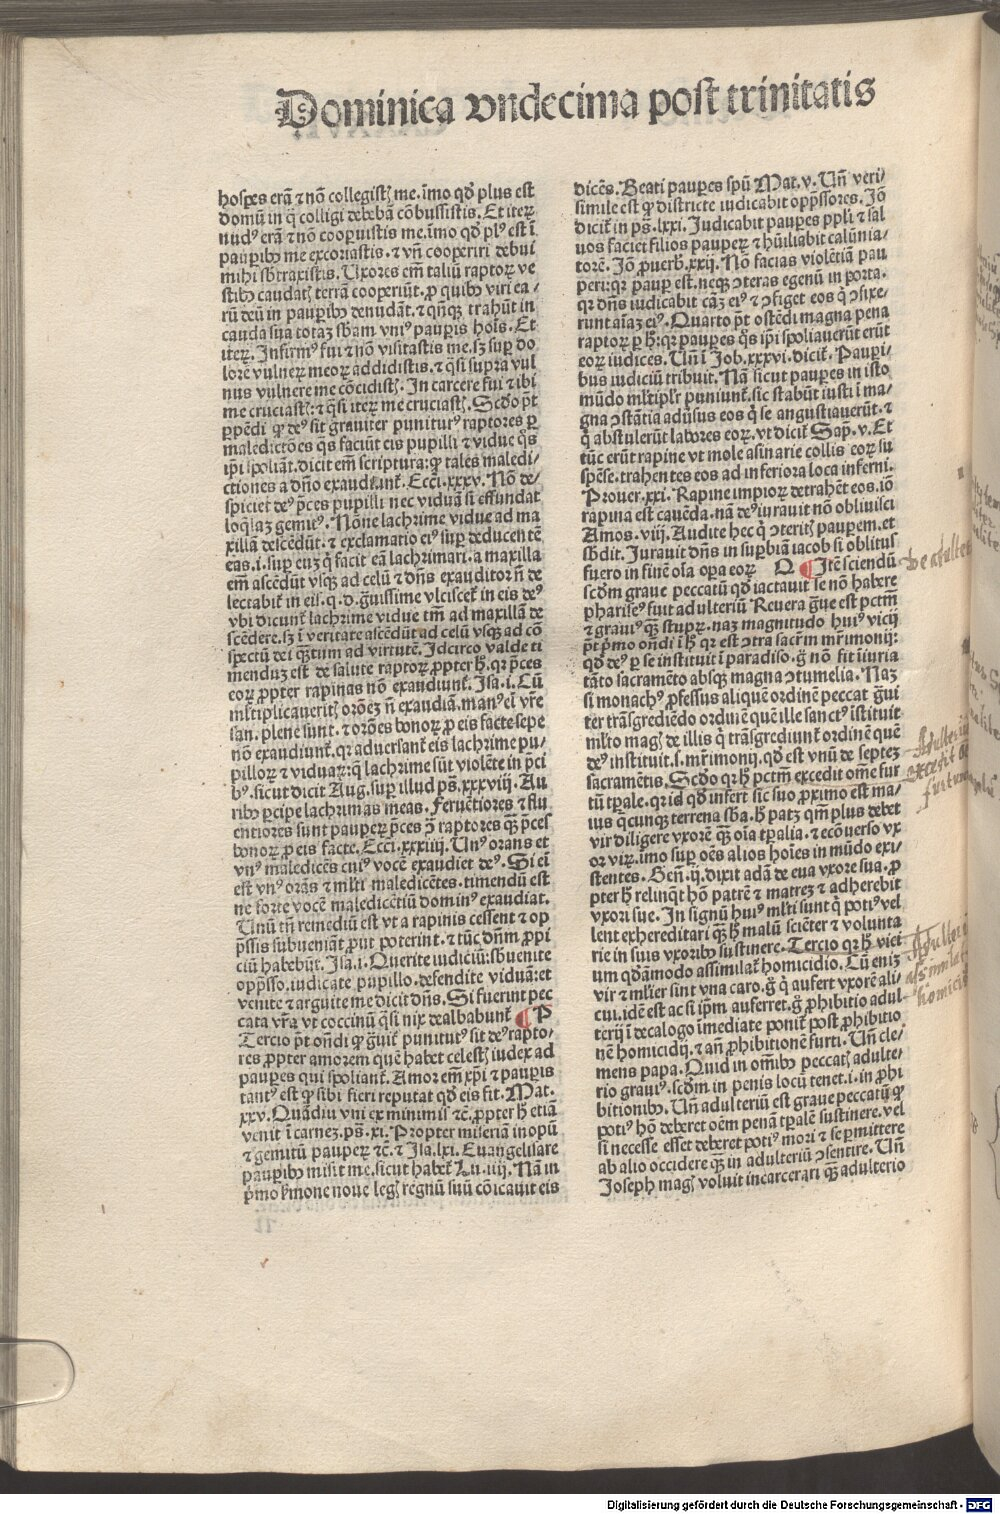 Dominica vndecima post trinitatis
hospes erā ⁊ nō collegistꝭ me. īmo qđ plus est
domū in q̄ colligi debebā cōbussistis. Et iteꝝ
nudꝰ erā ⁊ nō cooperuistis me. īmo qđ plꝰ est ī
pauꝑibꝰ me excoriastis. ⁊ vn̄ cooperiri debui
mihi sb̄traxistis. Uxores em̄ taliū raptoꝝ ve
stibꝰ caudatꝭ terrā cooperiūt. ꝓ quibꝰ viri ea⸗
rū deū in pauꝑibꝰ denudāt. ⁊ qn̄qꝫ trahūt in
cauda sua totaꝫ sb̄am vniꝰ pauꝑis hoīs. Et
iteꝝ. Infirmꝰ fui ⁊ nō visitastis me. sꝫ suꝑ do
lorē vulneꝝ meoꝝ addidistis. ⁊ q̄si supra vul
nus vulnere me cōcidistꝭ. In carcere fui ⁊ ibi
me cruciastꝭ: ⁊ q̄si iteꝝ me cruciastꝭ. Scd̄o pt̄
ꝑpēdi ꝙ deꝰ sit grauiter puniturꝰ raptores ꝑ
maledictōes q̄s faciūt eis pupilli ⁊ vidue q̄s
ip̄i spoliāt. dicit em̄ scriptura: ꝙ tales maledi⸗
ctiones a dn̄o exaudiunt̄. Ecci. xxxv. Nō de⸗
spiciet deꝰ p̄ces pupilli nec viduā si effundat
loq̄laꝫ gemitꝰ. Nōne lachrime vidue ad ma
xillā descēdūt. ⁊ exclamatio eiꝰ suꝑ deducentē
eas. i. suꝑ euꝫ q̄ facit eā lachrimari. a maxilla
em̄ ascēdūt vsqꝫ ad celū ⁊ dn̄s exauditor n̄ de
lectabit̄ in eis. q. d. ḡuissime vlciscet̄ in eis deꝰ
vbi dicunt̄ lachrime vidue tm̄ ad maxillā de
scēdere. sꝫ ī veritate ascēdūt ad celū vsqꝫ ad cō
spectū dei qꝫtum ad virtutē. Idcirco valde ti
menduꝫ est de salute raptoꝝ ꝓpter h̄. qꝛ p̄ces
eoꝝ ꝓpter rapinas nō exaudiunt̄. Isa. i. Cū
ml̄tiplicaueritꝭ orōeꝫ n̄ exaudiā. manꝰ em̄ vr̄e
san. plene sunt. ⁊ orōes bonoꝝ ꝓ eis facte sepe
nō exaudiunt̄. qꝛ aduersant̄ eis lachrime pu⸗
pilloꝝ ⁊ viduaꝝ: q̄ lachrime sūt violēte in p̄ci
bꝰ. sicut dicit Aug. suꝑ illud ps̄. xxxviij. Au
ribꝰ ꝑcipe lachrimas meas. Feruētiores ⁊ flu
entiores sunt pauꝑeꝝ p̄ces ↄ̄ raptores qꝫ p̄ces
bonoꝝ ꝓ eis facte. Ecci. xxxiiij. Unꝰ orans et
vnꝰ maledicēs cuiꝰ vocē exaudiet deꝰ. Si em̄
est vnꝰ orās ⁊ ml̄ti maledicētes. timendū est
ne forte vocē maledicētiū dominꝰ exaudiat.
Unū tn̄ remediū est vt a rapinis cessent ⁊ op
p̄ssis subueniāt ꝓut poterint. ⁊ tūc dn̄m ꝓpi
ciū habebūt. Isa. i. Querite iudiciū: sb̄uenite
opp̄sso. iudicate pupillo. defendite viduā: et
venite ⁊ arguite me dicit dn̄s. Si fuerint pec
cata vr̄a vt coccinū q̄si nix dealbabunt̄ ¶ P
Tercio pt̄ on̄di ꝙ ḡuit̄ puniturꝰ sit deꝰ rapto⸗
res ꝓpter amorem quē habet celestꝭ iudex ad
pauꝑes qui spoliant̄. Amor em̄ xp̄i ⁊ pauꝑis
tantꝰ est ꝙ sibi fieri reputat qđ eis fit. Mat.
xxv. Quādiu vni ex minimis ⁊c̄. ꝓpter h̄ etiā
venit ī carneꝫ. ps̄. xi. Propter miseriā inopū
⁊ gemitū pauꝑeꝝ ⁊c̄. ⁊ Isa. lxi. Euangelisare
pauꝑibꝰ misit me. sicut habet̄ Lu. iiij. Nā in
p̄mo s̄mone noue legꝭ regnū suū cōicauit eis
dicēs. Beati pauꝑes spū Mat. v. Un̄ veri⸗
simile est ꝙ districte iudicabit opp̄ssores. Iō
dicit̄ in ps̄. lxxi. Iudicabit pauꝑes ppl̄i ⁊ sal
uos faciet filios pauꝑeꝝ ⁊ hūiliabit calūnia⸗
torē. Iō ꝓuerb̄. xxij. Nō facias violētiā pau
peri: qꝛ pauꝑ est. neqꝫ ↄteras egenū in porta.
qꝛ dn̄s iudicabit cāꝫ eiꝰ ⁊ ↄfiget eos q̄ ↄfixe⸗
runt aīaꝫ eiꝰ. Quarto pt̄ ostēdi magna pena
raptoꝝ ꝑ h̄: qꝛ pauꝑes q̄s ip̄i spoliauerūt erūt
eoꝝ iudices. Un̄ ī Iob. xxxvi. dicit̄. Pauꝑi⸗
bus iudiciū tribuit. Nā sicut pauꝑes in isto
mūdo ml̄tiplr̄ puniunt̄. sic stabūt iusti ī ma⸗
gna ↄstātia adūsus eos q̄ se angustiauerūt. ⁊
q̄ abstulerūt labores eoꝝ. vt dicit̄ Sap̄. v. Et
tūc erūt rapine vt mole asinarie collis eoꝝ su
spēse. trahentes eos ad inferiora loca inferni.
Prouer. xxi. Rapine impioꝝ detrahēt eos. iō
rapina est cauēda. nā deꝰ iurauit nō obliuisci
Amos. viij. Audite hec q̄ ↄteritꝭ pauꝑem. et
sb̄dit. Iurauit dn̄s in suꝑbiā iacob si oblitus
fuero in finē oīa oꝑa eoꝝ Q ¶ Itē sciendū
scd̄m graue peccatū qđ iactauit se nō habere
phariseꝰ fuit adulteriū Reuera ḡue est pctm̄
⁊ grauiꝰ qꝫ stupꝝ. naꝫ magnitudo huiꝰ vicij
pt̄ p̄mo on̄di ī h̄ qꝛ est ↄtra sacr̄m mr̄imonij:
qđ deꝰ ꝑ se instituit ī paradiso. g̊ nō fit īiuria
tāto sacramēto absqꝫ magna ↄtumelia. Naꝫ
si monachꝰ ꝓfessus aliquē ordinē peccat ḡui
ter trāsgrediēdo ordinē quē ille sanctꝰ īstituit
ml̄to magꝭ de illis q̄ trāsgrediunt̄ ordinē quē
deꝰ instituit. s. mr̄imonij. qđ est vnū de septeꝫ
sacramētis. Scd̄o qꝛ h̄ pctm̄ excedit om̄e fur
tū tꝑale. qꝛ id qđ infert̄ sic suo ꝓximo est ma⸗
ius q̄cunqꝫ terrena sb̄a. h̄ patꝫ qm̄ plus debet
vir diligere vxorē qꝫ oīa tꝑalia. ⁊ ecōuerso vx
or viꝝ. īmo suꝑ oēs alios hoīes in mūdo exi⸗
stentes. Gen̄. ij. dixit adā de eua vxore sua. ꝓ
pter h̄ relinq̄t hō patrē ⁊ matreꝫ ⁊ adherebit
vxori sue. In signū huiꝰ ml̄ti sunt q̄ potiꝰ vel
lent exhereditari qꝫ h̄ malū sciēter ⁊ volunta
rie in suis vxoribꝰ sustinere. Tercio qꝛ h̄ vici
um qđāmodo assimilat̄ homicidio. Cū eniꝫ
vir ⁊ ml̄ier sint vna caro. g̊ q̄ aufert vxorē ali⸗
cui. idē est ac si ip̄m auferret. g̊ ꝓhibitio adul
terij ī decalogo īmediate ponit̄ post ꝓhibitio
nē homicidij. ⁊ an̄ ꝓhibitionē furti. Un̄ cle⸗
mens papa. Quid in om̄ibꝰ peccatꝭ adulte⸗
rio grauiꝰ. scd̄m in penis locū tenet. i. in ꝓhi
bitionibꝰ. Un̄ adulteriū est graue peccatū ꝙ
potiꝰ hō deberet oēm penā tꝑalē sustinere. vel
si necesse esset deberet potiꝰ mori ⁊ se ꝑmittere
ab alio occidere qꝫ in adulteriū ↄsentire. Un̄
Ioseph magꝭ voluit incarcerari qꝫ adulterio
Adulteriū
excedit oē
furtum
Adulteriū
assimilat̄
homicidio
Digitalisierung gefördert durch die Deutsche Forschungsgemeinschaft - DFG